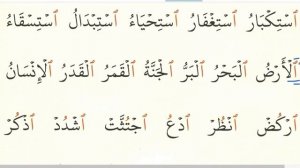 ٱسْتِكْبَارُ ٱسْتِغْفَارُ ٱسْتِحْيَاءُ ٱسْتِبْدَالُ ٱسْتِسْقَاءُ
ٱلْأَرْضُ ٱلْبَحْرُ ٱلْبَرُّ ٱلْجَنَّةُ ٱلْقَمَرُ ٱلْقَدَرُ ٱلْإِنْسَانُ
ٱرْكُضْ ٱنْظُرْ ٱدْعُ ٱجْتُثَّتْ ٱشْدُدْ ٱذْكُرْ